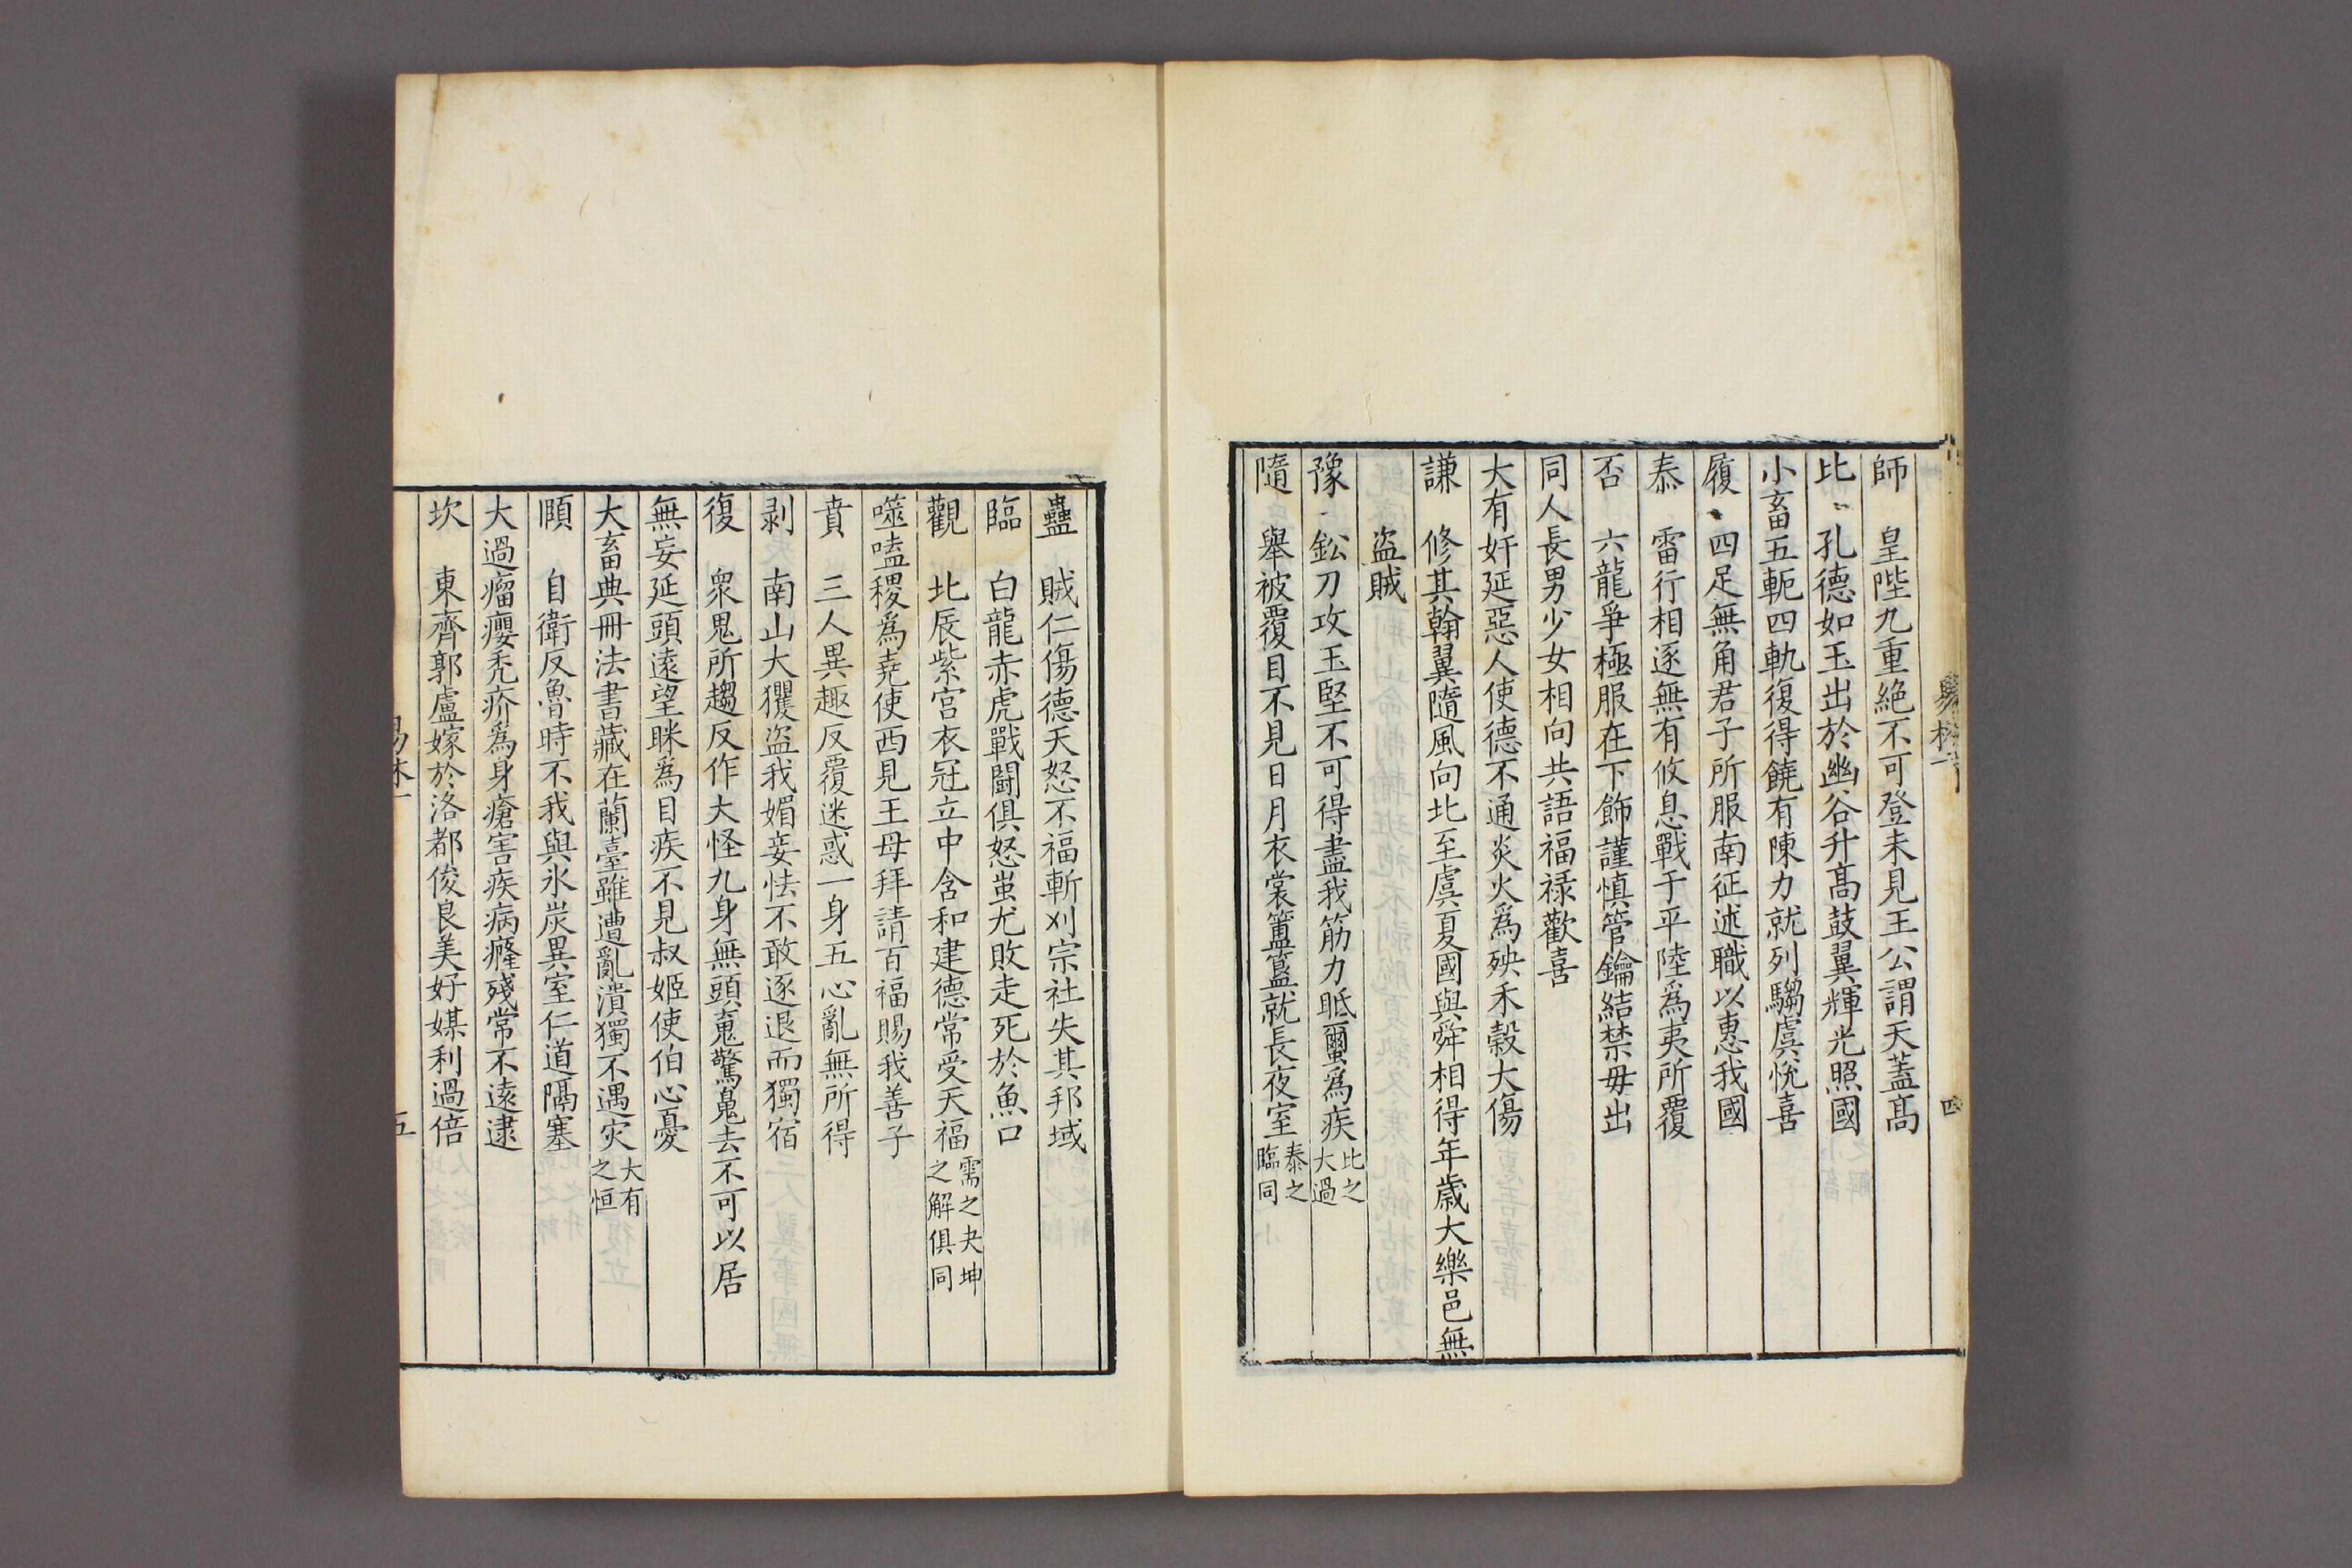 師　皇陛九重絶不可登未見王公謂天蓋髙
比　孔德如玉出於幽谷升髙鼓翼輝光照國
小畜五軛四軌復得饒有陳力就列騶虞悅喜
履　四足無角君子所服南征述職以惠我國
泰　雷行相逐無有攸息戰于平陸爲夷所覆
否　六龍爭極服在下飾謹慎管鑰結禁毋出
同人長男少女相向共語福禄歡喜
大有奸延惡人使德不通炎火爲殃禾穀大傷
謙　修其翰翼隨風向北至虞夏國與舜相得年歳大樂邑無
盜賊
豫　鈆刀攻玉堅不可得盡我筋力胝䘌爲疾比之大過
隨　舉被覆目不見日月衣裳簠簋就長夜室泰之臨同
四
蠱　賊仁傷德天怒不福斬刈宗社失其邦域
臨　白龍赤虎戰鬭俱怒蚩尤敗走死於魚口
觀　北辰紫宫衣冠立中含和建德常受天福需之夬坤之解俱同
噬嗑稷爲堯使西見王母拜請百福賜我善子
賁　三人異趣反覆迷惑一身五心亂無所得
剥　南山大玃盜我媚妾怯不敢逐退而獨宿
復　衆鬼所趨反作大怪九身無頭䰟驚魄去不可以居
無妄延頭遠望眯爲目疾不見叔姬使伯心憂
大畜典冊法書藏在蘭臺雖遭亂潰獨不遇灾大有之恒
頤　自衛反魯時不我與氷炭異室仁道隔塞
大過瘤癭秃疥爲身瘡害疾病癃殘常不遠逮
坎　東齊郭盧嫁於洛都俊良美好媒利過倍
易林一
五